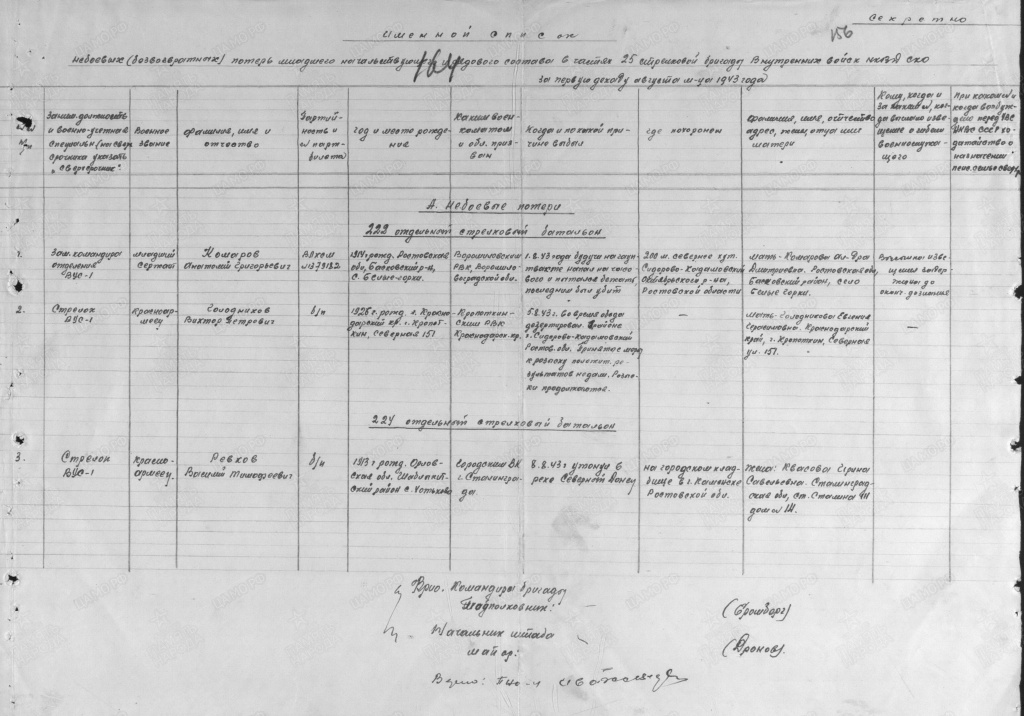 Секретно
156
164
Именной список
небоевых (безвозвратных) потерь младшего начальствующего и рядового состава в частях 25 стрелковой бригады Внутренних войск НКВД СКО
за первую декаду августа м-ца 1943 года
№№ п/п
Заним. должность и военно-учетная специальн.
сверхсрочник
Военное звание
Фамилия, имя и отчество
Партийность и № партбилета
Год и место рождение
Каким военкоматом и обл. призван
Когда и по какой причине выбыл
Где похоронен
Фамилия, имя, отчество адрес, жены, отца или матери
Кому, когда и за каким №, когда выслано извещение о гибели военнослужащего
При каком № и когда возбуждено перед
ходатайство о назначении
А. Небоевые потери
222 отдельный стрелковый батальон
1.
Зам. командира
отделения
ВУС-1
младший
сержант
Комаров
Анатолий Григорьевич
ВЛКСМ
1914 г. рожд. Ростовская
обл,
с. Белые горки.
Ворошиловский
РВК, Ворошиловградской обл.
1.8.43 года будучи на
последним был убит
200 м. севернее хут.
Сидорово-Кадамовский
Октябрьского р-на,
Ростовской области
мать- Комарова
Дмитриевна. Ростовская обл,
район, село
Белые горки.
2.
Стрелок
ВУС-1
красноармеец
Солодников
Виктор Петрович
б/п
1926 г. рожд.
Краснодарский кр. г. Кропоткин, Северная 151
Кропоткинский РВК
Краснодарск. кр.
5.8.43 г. Во время обеда
дезертировал. В районе
х. Сидорово-Кадамовский
Ростов. обл. Принятые меры
к розыску положит. результатов не дали. Розыски продолжаются.
—
мать- Солодникова Евгения
Краснодарский
край, г. Кропоткин, Северная
ул. 151.
—
224 отдельный стрелковый батальон
3.
Стрелок
ВУС-1
красноармеец
Ревков
Василий Тимофеевич
б/п
1913 г рожд. Орловская обл. Шаблыкинский район с. Хотьково
Городским ВК
г. Сталинграда
8.8.43 г утонул в
реке Северный Донец
на городском кладбище в г. Каменске
Ростовской обл.
жена: Квасова Ирина
Савельевна. Сталинградская обл, ст. Сталина
Врио. Командира бригады
Подполковник:
(Бромберг)
Начальник штаба
майор:
(Дронов).